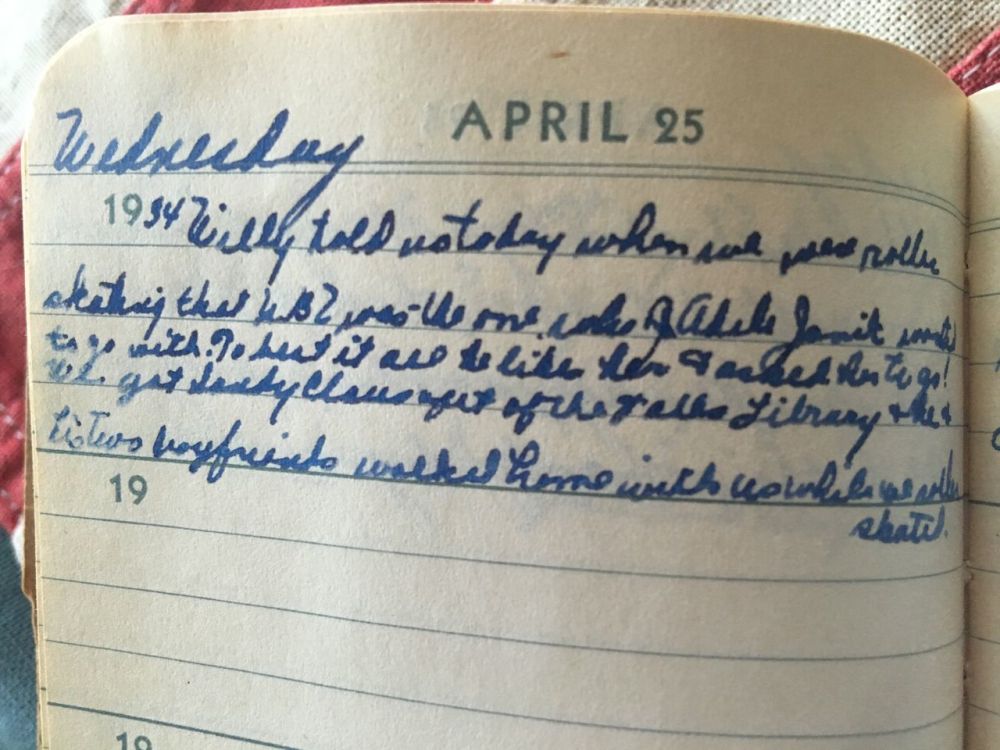 APRIL 25
Wednesday
1934 Willy told us today when we were roller
skating that was the one who Adele Janik wanted
to go with. To beat it all he likes her & asked her to go!
We got Sandy Claus out of the Falls Library & he &
his two boyfriends walked home with us while we roller
19
skated.
19